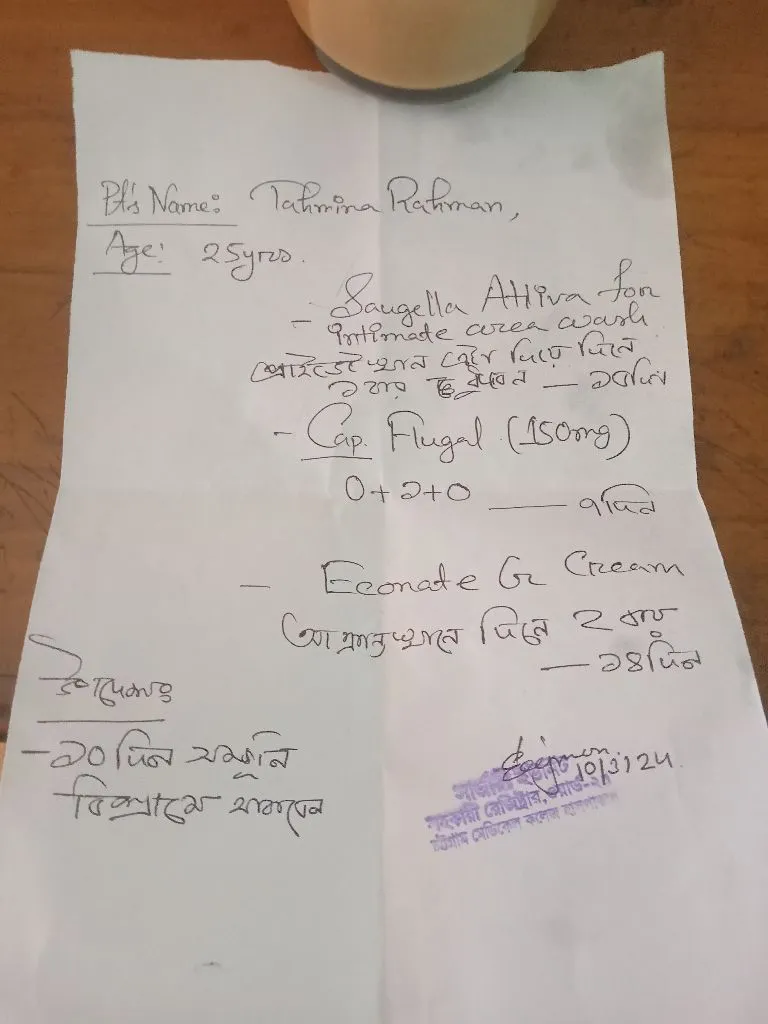 Pt's Name: Tahmina Rahman,
Age: 25yrs.
- Saugella Attiva for
intimate area wash
দিয়ে দিনে
১ বার ধুবেন — ১০দিন
- Cap. Flugal (150mg)
0+১+0 — ৭দিন
- Econate G Cream
আক্রান্ত স্থানে দিনে 2 বার
— ১৪দিন
উপদেশঃ
- ১০ দিন
বিশ্রামে থাকবেন
10/3/24
সহকারী রেজিস্ট্রার, ওয়ার্ড-
চট্টগ্রাম মেডিকেল কলেজ হাসপাতাল